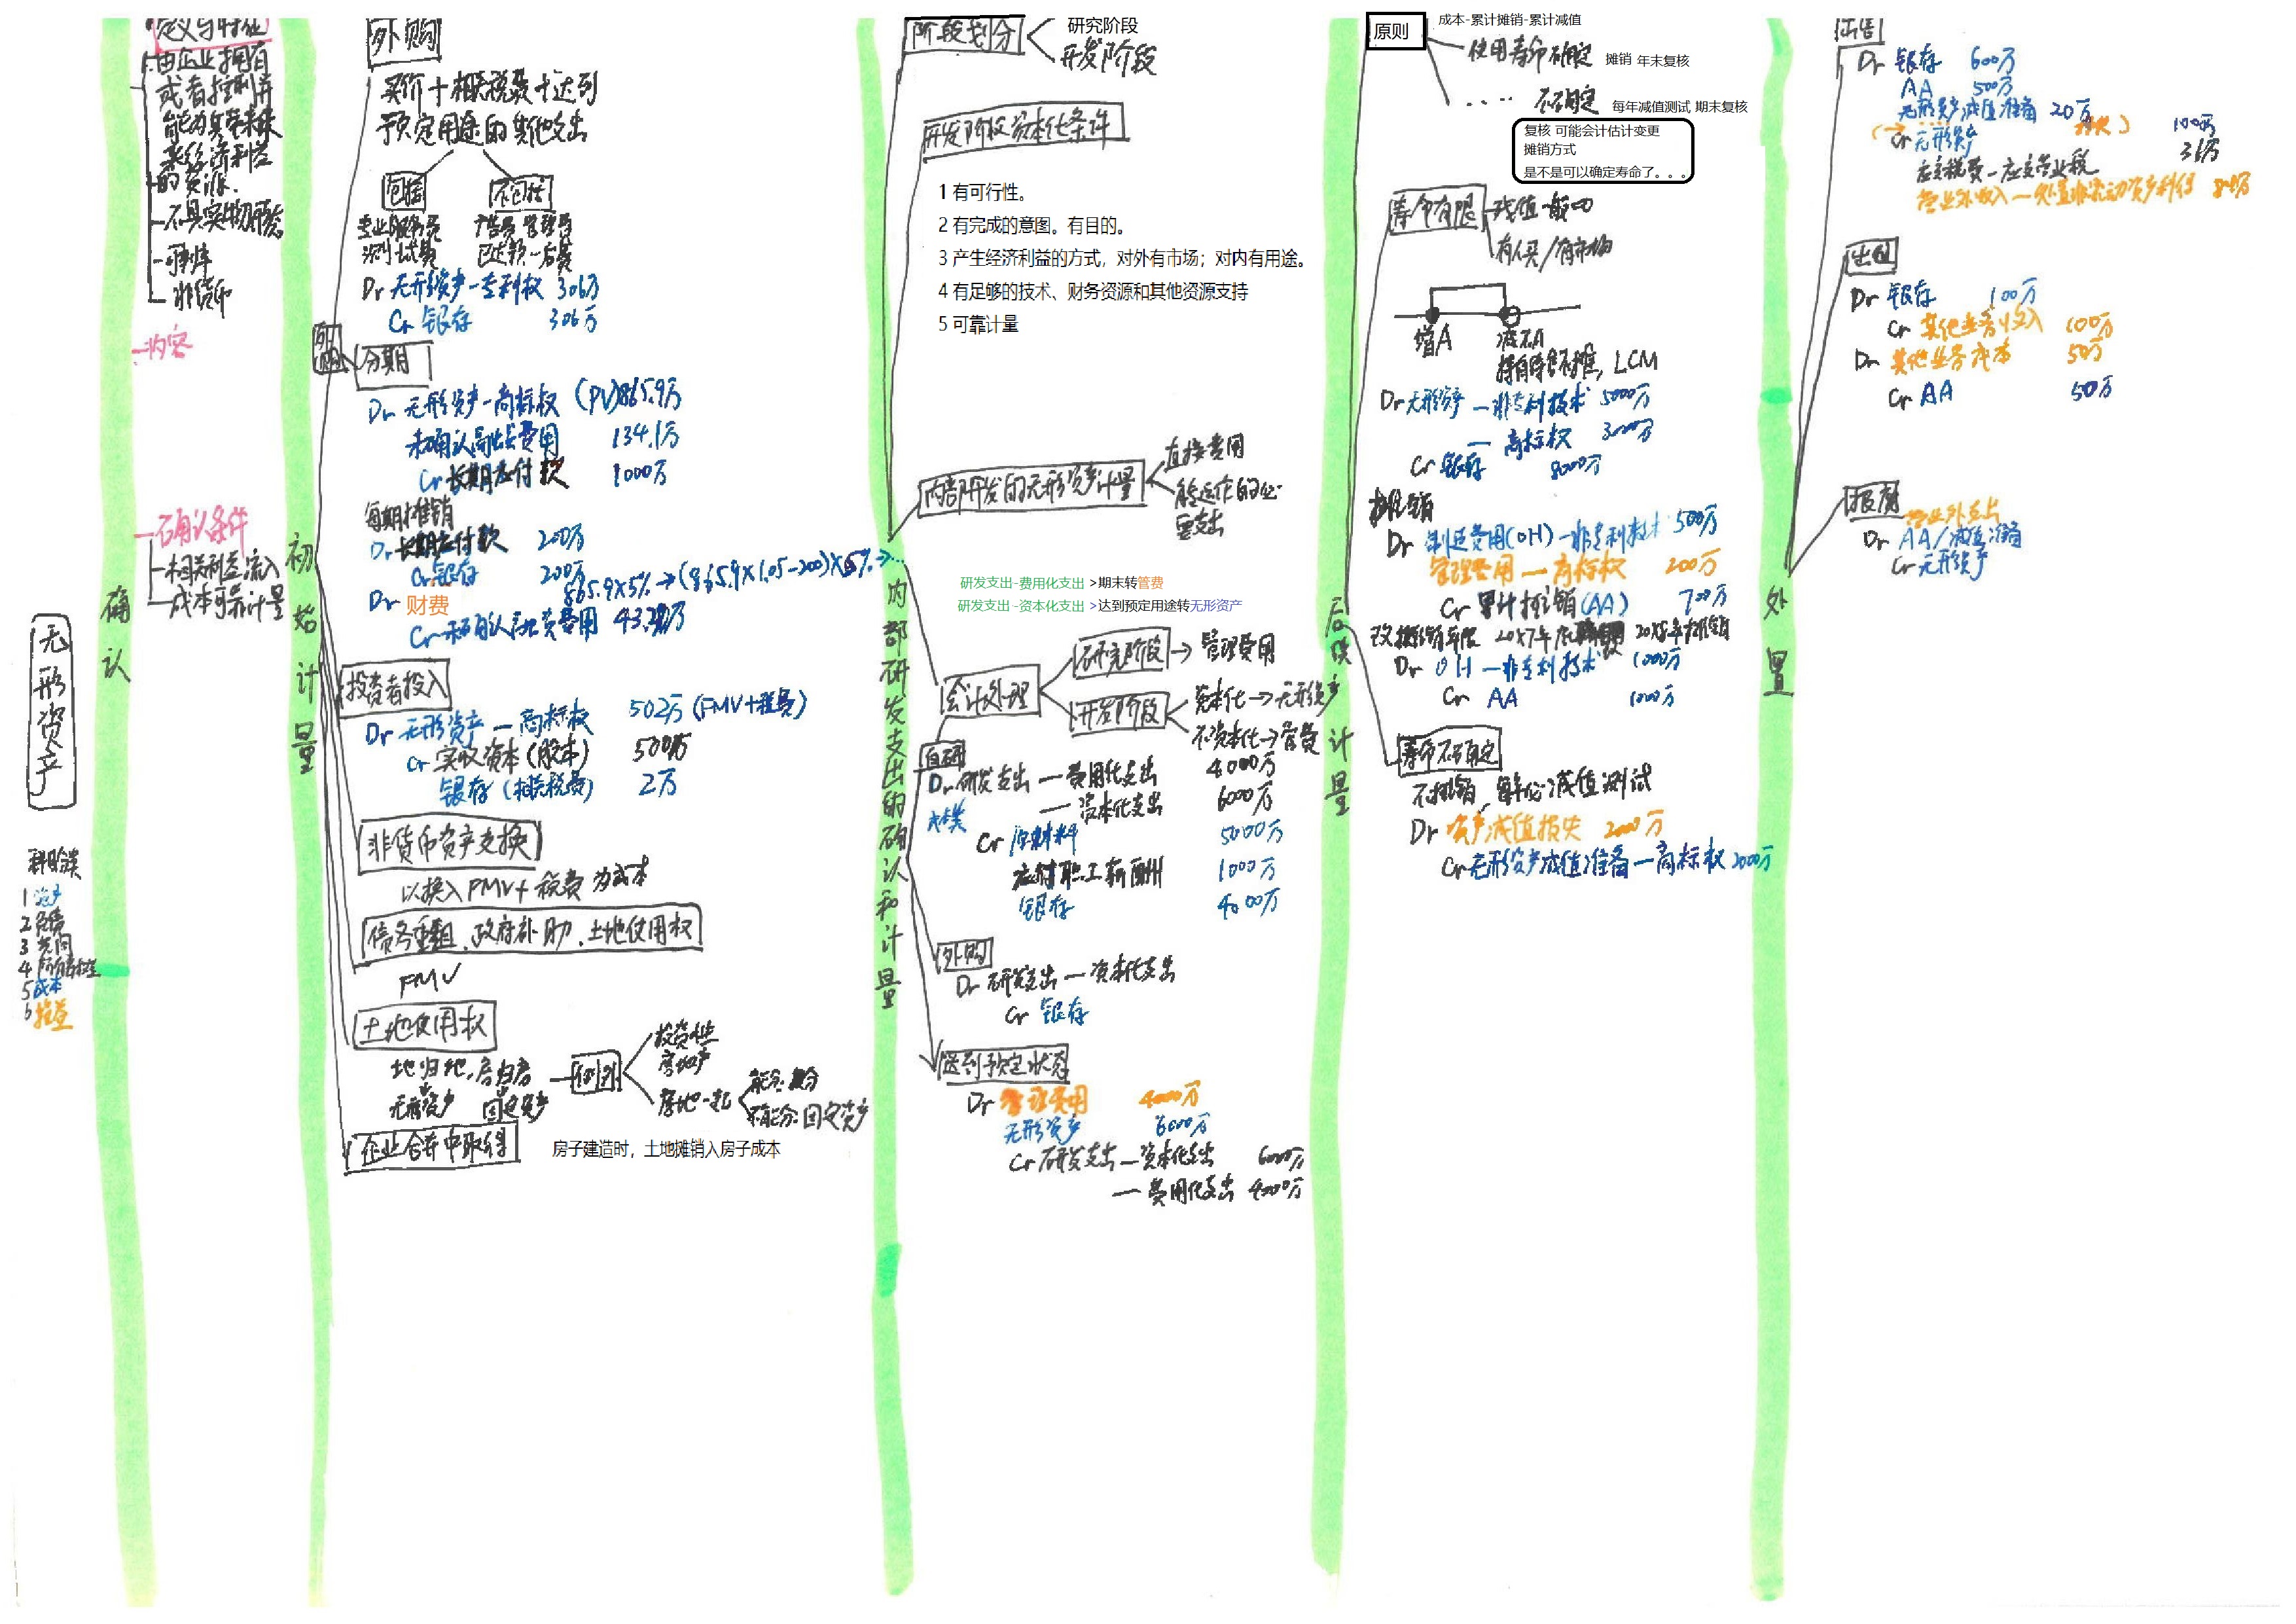 无形资产
科目分类
1资产
2负债
3共同
4所有者权益
5成本
6损益
确认
定义与特征
由企业拥有
或者控制并
能为其带来未
来经济利益
的资源.
不具实物形态
可辨认
非货币
内容
确认条件
相关利益流入
成本可靠计量
初始计量
外购
买价+相关税费+达到
预定用途的其他支出
包括
不包括
专业服务费
测试费
广告费 管理费
Dr 无形资产-专利权 306万
Cr 银存 306万
外购
分期
Dr 无形资产-商标权 (PV)865.9万
未确认融资费用 134.1万
Cr 长期应付款 1000万
每期摊销
Dr 长期应付款 200万
Cr 银存 200万
865.9×5%→(865.9×1.05-200)×5%→…
Dr 财费
Cr 未确认融资费用
投资者投入
Dr 无形资产—商标权 502万 (FMV+税费)
Cr 实收资本(股本) 500万
银存(相关税费) 2万
非货币资产交换
以换入FMV+税费为成本
债务重组、政府补助、土地使用权
FMV
土地使用权
地归地,房归房
无形资产 固定资产
例外
投资性
房地产
房地一起
能分:分
不能分:固定资产
企业合并中取得
房子建造时，土地摊销入房子成本
内部研发支出的确认和计量
阶段划分
研究阶段
开发阶段
开发阶段资本化条件
1 有可行性。
2 有完成的意图。有目的。
3 产生经济利益的方式，对外有市场；对内有用途。
4 有足够的技术、财务资源和其他资源支持
5 可靠计量
内部开发的无形资产计量
直接费用
能运作的必
要支出
研发支出-费用化支出 >期末转管费
研发支出-资本化支出 >达到预定用途转无形资产
会计处理
研究阶段→管理费用
开发阶段
资本化→无形资产
不资本化→管费
自研
Dr 研发支出—费用化支出 4000万
—资本化支出 6000万
成本类
Cr 原材料 5000万
应付职工薪酬 1000万
银存 4000万
外购
Dr 研发支出—资本化支出
Cr 银存
达到预定状态
Dr 管理费用 4000万
无形资产 6000万
Cr 研发支出—资本化支出 6000万
—费用化支出 4000万
后续计量
原则
成本-累计摊销-累计减值
使用寿命确定 摊销 年末复核
…. 不确定 每年减值测试 期末复核
复核 可能会计估计变更
摊销方式
是不是可以确定寿命了。。。
寿命有限
残值一般=0
有人买/有市场
增A 减A
持有待售不摊, LCM
Dr 无形资产—非专利技术 5000万
—商标权 3000万
Cr 银存 8000万
摊销
Dr 制造费用(OH)—非专利技术 500万
管理费用—商标权 200万
Cr 累计摊销(AA) 700万
改摊销年限 20X7年底 20X8年摊销
Dr OH—非专利技术 1000万
Cr AA 1000万
寿命不确定
不摊销,每年必须减值测试
Dr 资产减值损失 2000万
Cr 无形资产减值准备—商标权 2000万
处置
出售
Dr 银存 600万
AA 500万
无形资产减值准备 20万
Cr 无形资产 1000万
应交税费—应交营业税 36万
营业外收入—处置非流动资产利得 84万
出租
Dr 银存 100万
Cr 其他业务收入 100万
Dr 其他业务成本 50万
Cr AA 50万
报废
营业外支出
Dr AA/减值准备
Cr 无形资产